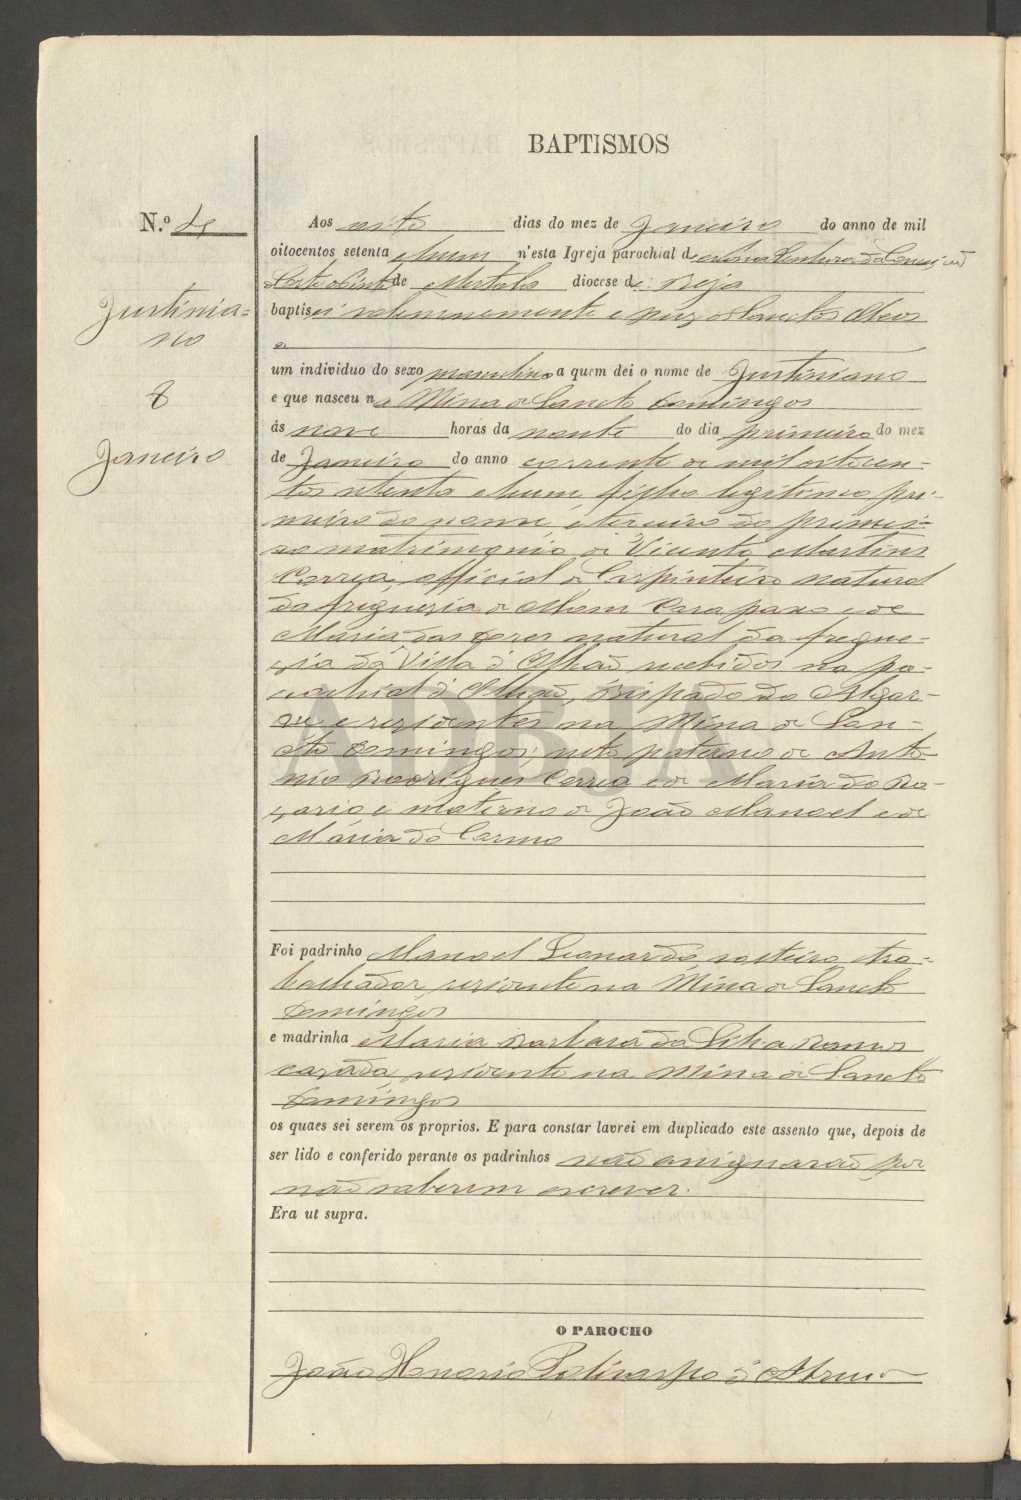 BAPTISMOS
N.º 4
Justinia=
no
8
Janeiro
Aos oito dias do mez de Janeiro do anno de mil
oitocentos setenta e hum n'esta Igreja parochial d
de Mertola diocese de Beja
baptisei solemnemente e puz os Sanctos Oleos
a
um individuo do sexo masculino a quem dei o nome de Justiniano
e que nasceu na Mina de Sancto Domingos
ás nove horas da noute do dia primeiro do mez
de Janeiro do anno corrente de mil oitocen-
tos setenta e hum, filho legitimo pri-
meiro do nome, e terceiro do primei-
ro matrimonio de Vicente Martins
Correa, official de Carpinteiro natural
da freguezia de Moncarapaxo e de
Maria das Dores natural da fregue-
zia da Villa d'Olhão recebidos na pa-
rochial d'Olhão, Bispado do Algar-
ve e residentes na Mina de San-
cto Domingos; neto paterno de Anto-
nio Rodrigues Correa e de Maria do Ro-
zario e materno de João Manoel e de
Maria do Carmo
ADBJA
Foi padrinho Manoel Leonardo, solteiro, tra-
balhador, residente na Mina de Sancto
Domingos
e madrinha Maria Barbara da Silva Ramos
cazada, residente na Mina de Sancto
Domingos
os quaes sei serem os proprios. E para constar lavrei em duplicado este assento que, depois de
ser lido e conferido perante os padrinhos não assignarão por
não saberem escrever.
Era ut supra.
O PAROCHO
João Honorio Policarpo d'Abreu